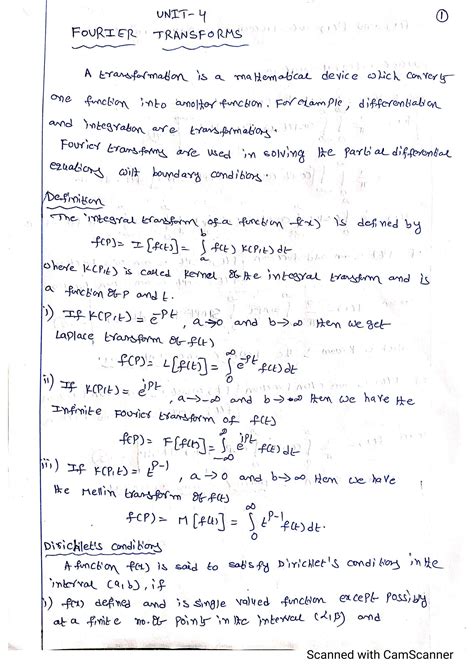 UNIT-4
①
FOURIER TRANSFORMS
A transformation is a mathematical device which converts
one function into another function. For example, differentiation
and integration are transformations.
Fourier transforms are used in solving the partial differential
equations with boundary conditions.
Definition
The integral transform of a function f(x) is defined by
f(P) = I[f(t)] = ∫_a^b f(t) K(P,t) dt
where K(P,t) is called kernel of the integral transform and is
a function of P and t.
i) If K(P,t) = e^{-Pt}, a→0 and b→∞ then we get
Laplace transform of f(t)
f(P) = L[f(t)] = ∫_0^∞ e^{-Pt} f(t) dt
ii) If K(P,t) = e^{iPt}, a→-∞ and b→∞ then we have the
Infinite Fourier transform of f(t)
f(P) = F[f(t)] = ∫_{-∞}^∞ e^{iPt} f(t) dt
iii) If K(P,t) = t^{P-1}, a→0 and b→∞ then we have
the Mellin transform of f(t)
f(P) = M[f(t)] = ∫_0^∞ t^{P-1} f(t) dt.
Dirichlet's conditions
A function f(x) is said to satisfy Dirichlet's conditions in the
interval (a,b), if
i) f(x) defined and is single valued function except possibly
at a finite no. of points in the interval (α,β) and
Scanned with CamScanner